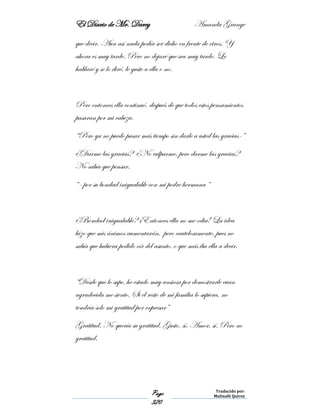 El Diario de Mr. Darcy Amanda Grange
que decir. Aun así nada podía ser dicho en frente de otros. Y
ahora es muy tarde. Pero no dejaré que sea muy tarde. Le
hablaré y se lo diré, le guste a ella o no.
Pero entonces ella continuó, después de que todos estos pensamientos
pasaran por mi cabeza.
“Pero ya no puedo pasar más tiempo sin darle a usted las gracias -”
¿Darme las gracias? ¿No culparme, pero darme las gracias?
No sabía que pensar.
“- por su bondad inigualable con mi pobre hermana”
¿Bondad inigualable? ¡Entonces ella no me odia! La idea
hizo que mis ánimos aumentarán, pero cautelosamente, pues no
sabía que hubiera podido oír del asunto, o que más iba ella a decir.
“Desde que lo supe, he estado muy ansiosa por demostrarle cuan
agradecida me siento. Si el resto de mi familia lo supiera, no
tendría solo mi gratitud por expresar”
Gratitud. No quería su gratitud. Gusto, sí. Amor, sí. Pero no
gratitud.
Page
320
Traducido por:
Malinalli Quiroz